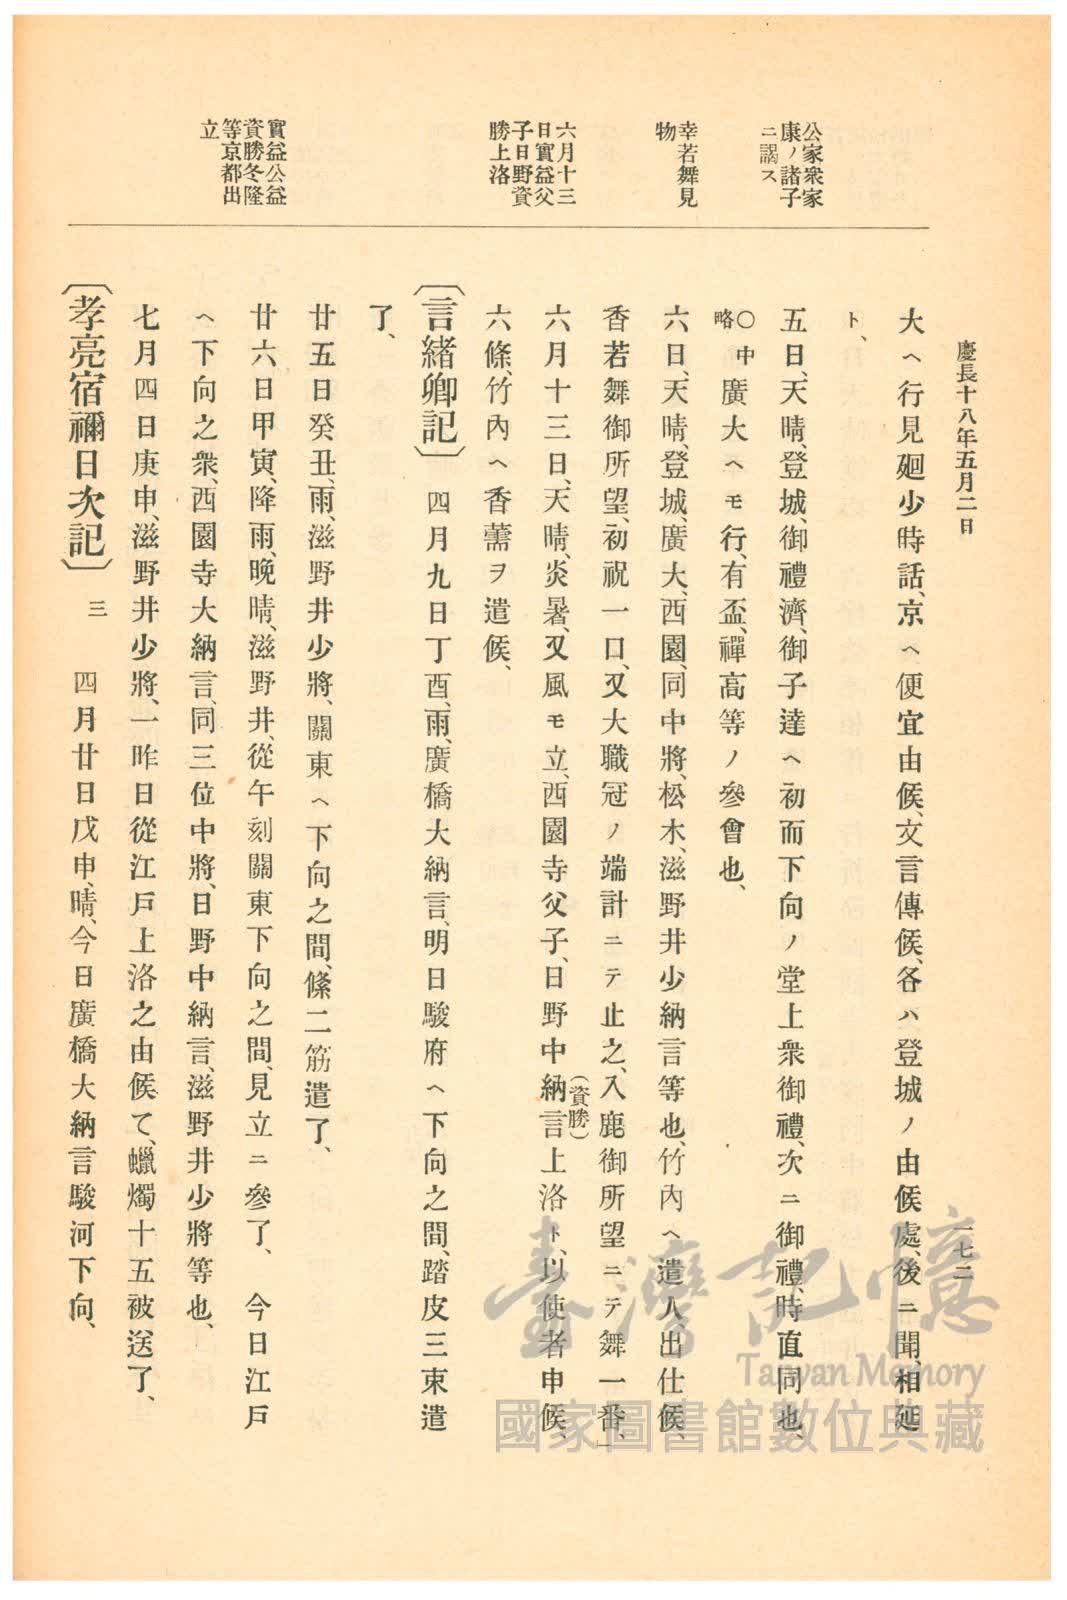 慶長十八年五月二日
一七二
公家衆家
康ノ諸子
ニ謁ス
幸若舞見
物
六月十三
日實益父
子日野資
勝上洛
實益公益
資勝冬隆
等京都出
立
大ヘ行見廻少時話、京ヘ便宜由候、文言傳候、各ハ登城ノ由候處、後ニ聞、相延
ト、
五日、天晴、登城、御禮濟、御子達ヘ初而下向ノ堂上衆御禮、次ニ御禮、時直同也、
〇中略廣大ヘモ行、有盃、禪高等ノ參會也、
六日、天晴、登城、廣大、西園、同中將、松木、滋野井少納言等也、竹內ヘ遣人、出仕候、
香若舞御所望、初祝一口、又大職冠ノ端計ニテ止之、入鹿御所望ニテ舞一番、」
六月十三日、天晴、炎暑、又風モ立、西園寺父子、日野中納言(資勝)上洛ト、以使者申候、
六條、竹內ヘ香薷ヲ遣候、
〔言緖卿記〕四月九日丁酉、雨、廣橋大納言、明日駿府ヘ下向之間、踏皮三束遣
了、
廿五日癸丑、雨、滋野井少將、關東ヘ下向之間、絛二筋遣了、
廿六日甲寅、降雨、晚晴、滋野井、從午刻關東下向之間、見立ニ參了、今日江戶
ヘ下向之衆、西園寺大納言、同三位中將、日野中納言、滋野井少將等也、
七月四日庚申、滋野井少將、一昨日從江戶上洛之由候て、蠟燭十五被送了、
〔孝亮宿禰日次記〕三 四月廿日戊申、晴、今日廣橋大納言駿河下向、
臺灣記憶
Taiwan Memory
國家圖書館數位典藏